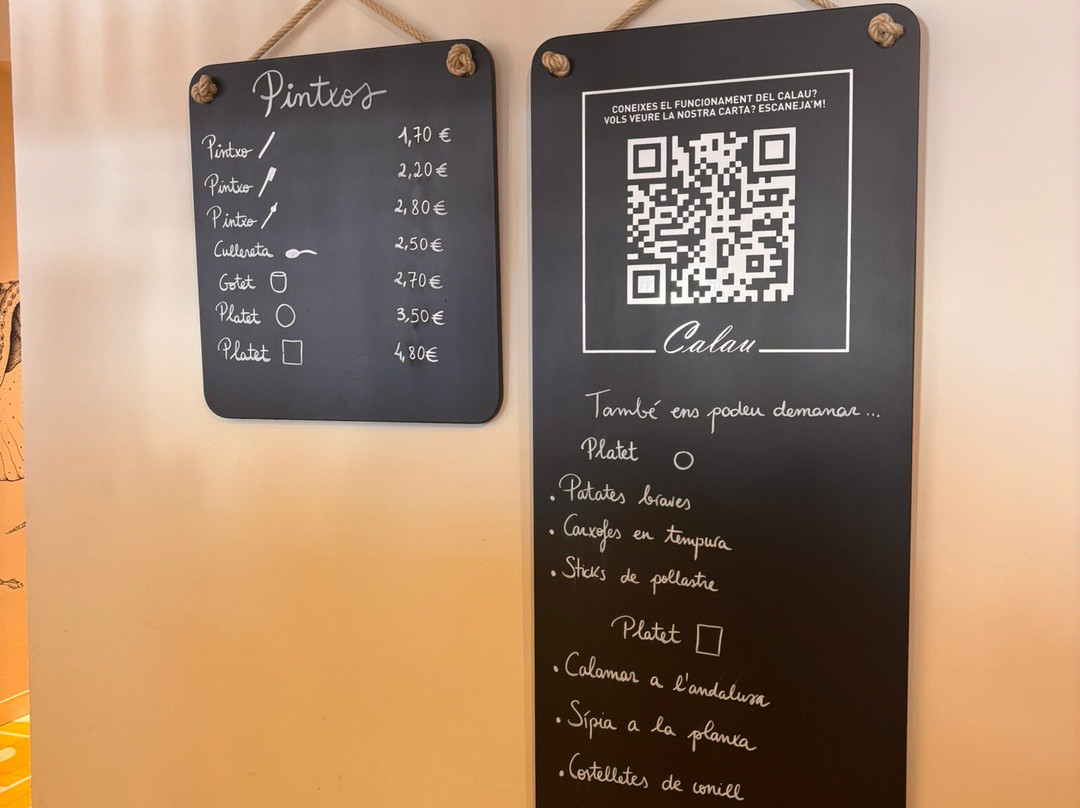 Pintxos
Pintxo 1,70 €
Pintxo 2,20 €
Pintxo 2,80 €
Cullereta 2,50 €
Gotet 2,70 €
Platet 3,50 €
Platet 4,80 €
CONEIXES EL FUNCIONAMENT DEL CALAU?
VOLS VEURE LA NOSTRA CARTA? ESCANEJA'M!
Calau
També ens podeu demanar ...
Platet
• Patates braves
• Carxofes en tempura
• Sticks de pollastre
Platet
• Calamar a l'andalusa
• Sípia a la planxa
• Costelletes de conill